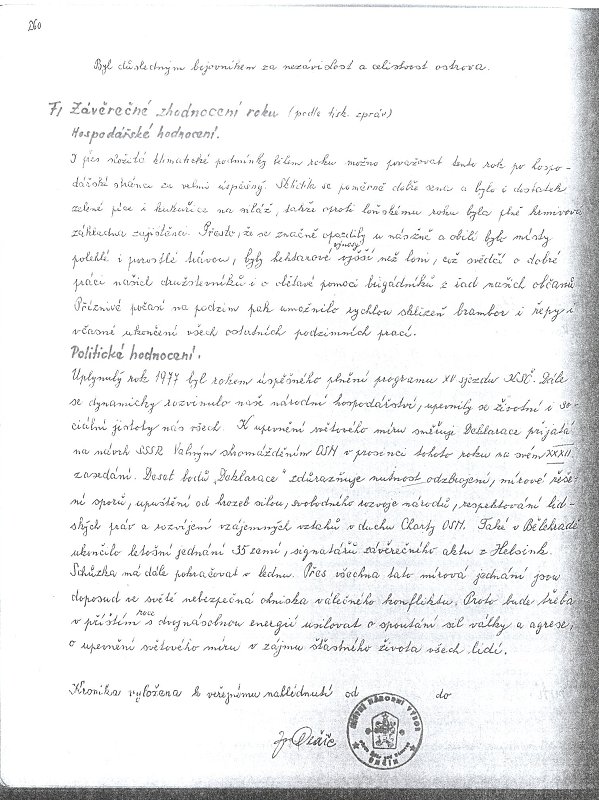 260
Byl důsledným bojovníkem za nezávislost a celistvost ostrova.
F) Závěrečné zhodnocení roku (podle tisk. zpráv)
Hospodářské hodnocení.
I přes složité klimatické podmínky během roku možno považovat tento rok po hospo-
dářské stránce za velmi úspěšný. Sklidilo se poměrně dobře sena a bylo i dostatek
zelené píce i kukuřice na siláž, takže oproti loňskému roku byla plně krmivová
základna zajištěna. Přesto, že se značně opozdily a obilí bylo místy
polehlé i porostlé trávou, byly hektarové výnosy vyšší než loni, což svědčí o dobré
práci našich družstevníků i o obětavé pomoci brigádníků z řad našich občanů.
Příznivé počasí na podzim pak umožnilo rychlou sklizeň brambor i řepy i
včasné ukončení všech ostatních podzimních prací.
Politické hodnocení.
Uplynulý rok 1977 byl rokem úspěšného plnění programu XV sjezdu KSČ. Dále
se dynamicky rozvinulo naše národní hospodářství, upevnily se životní i so-
ciální jistoty nás všech. K upevnění světového míru směřuje Deklarace přijatá
na návrh SSSR Valným shromážděním OSN v prosinci tohoto roku na svém XXXII.
zasedání. Deset bodů „Deklarace" zdůrazňuje nutnost odzbrojení, mírové řeše-
ní sporů, upuštění od hrozeb silou, svobodného rozvoje národů, respektování lid-
ských práv a rozvíjení vzájemných vztahů v duchu Charty OSN. Také v Bělehradě
ukončilo letošní jednání 35 zemí, signatářů závěrečného aktu z Helsink.
Schůzka má dále pokračovat v lednu. Přes všechna tato mírová jednání jsou
doposud ve světě nebezpečná ohniska válečného konfliktu. Proto bude třeba
v příštím roce s dvojnásobnou energií usilovat o spoutání sil války a agrese,
o upevnění světového míru v zájmu šťastného života všech lidí.
Kronika vyložena k veřejnému nahlédnutí od do
MÍSTNÍ NÁRODNÍ VÝBOR